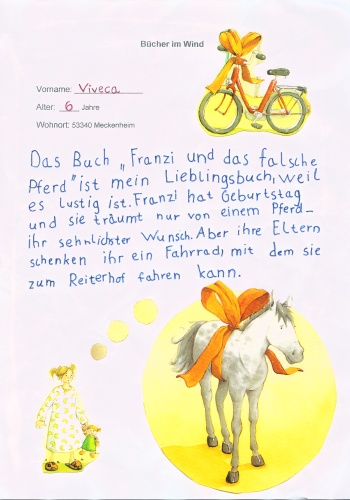 Bücher im Wind
Vorname: Viveca
Alter: 6 Jahre
Wohnort: 53340 Meckenheim
Das Buch „Franzi und das falsche
Pferd" ist mein Lieblingsbuch, weil
es lustig ist. Franzi hat Geburtstag
und sie träumt nur von einem Pferd –
ihr sehnlichster Wunsch. Aber ihre Eltern
schenken ihr ein Fahrrad, mit dem sie
zum Reiterhof fahren kann.